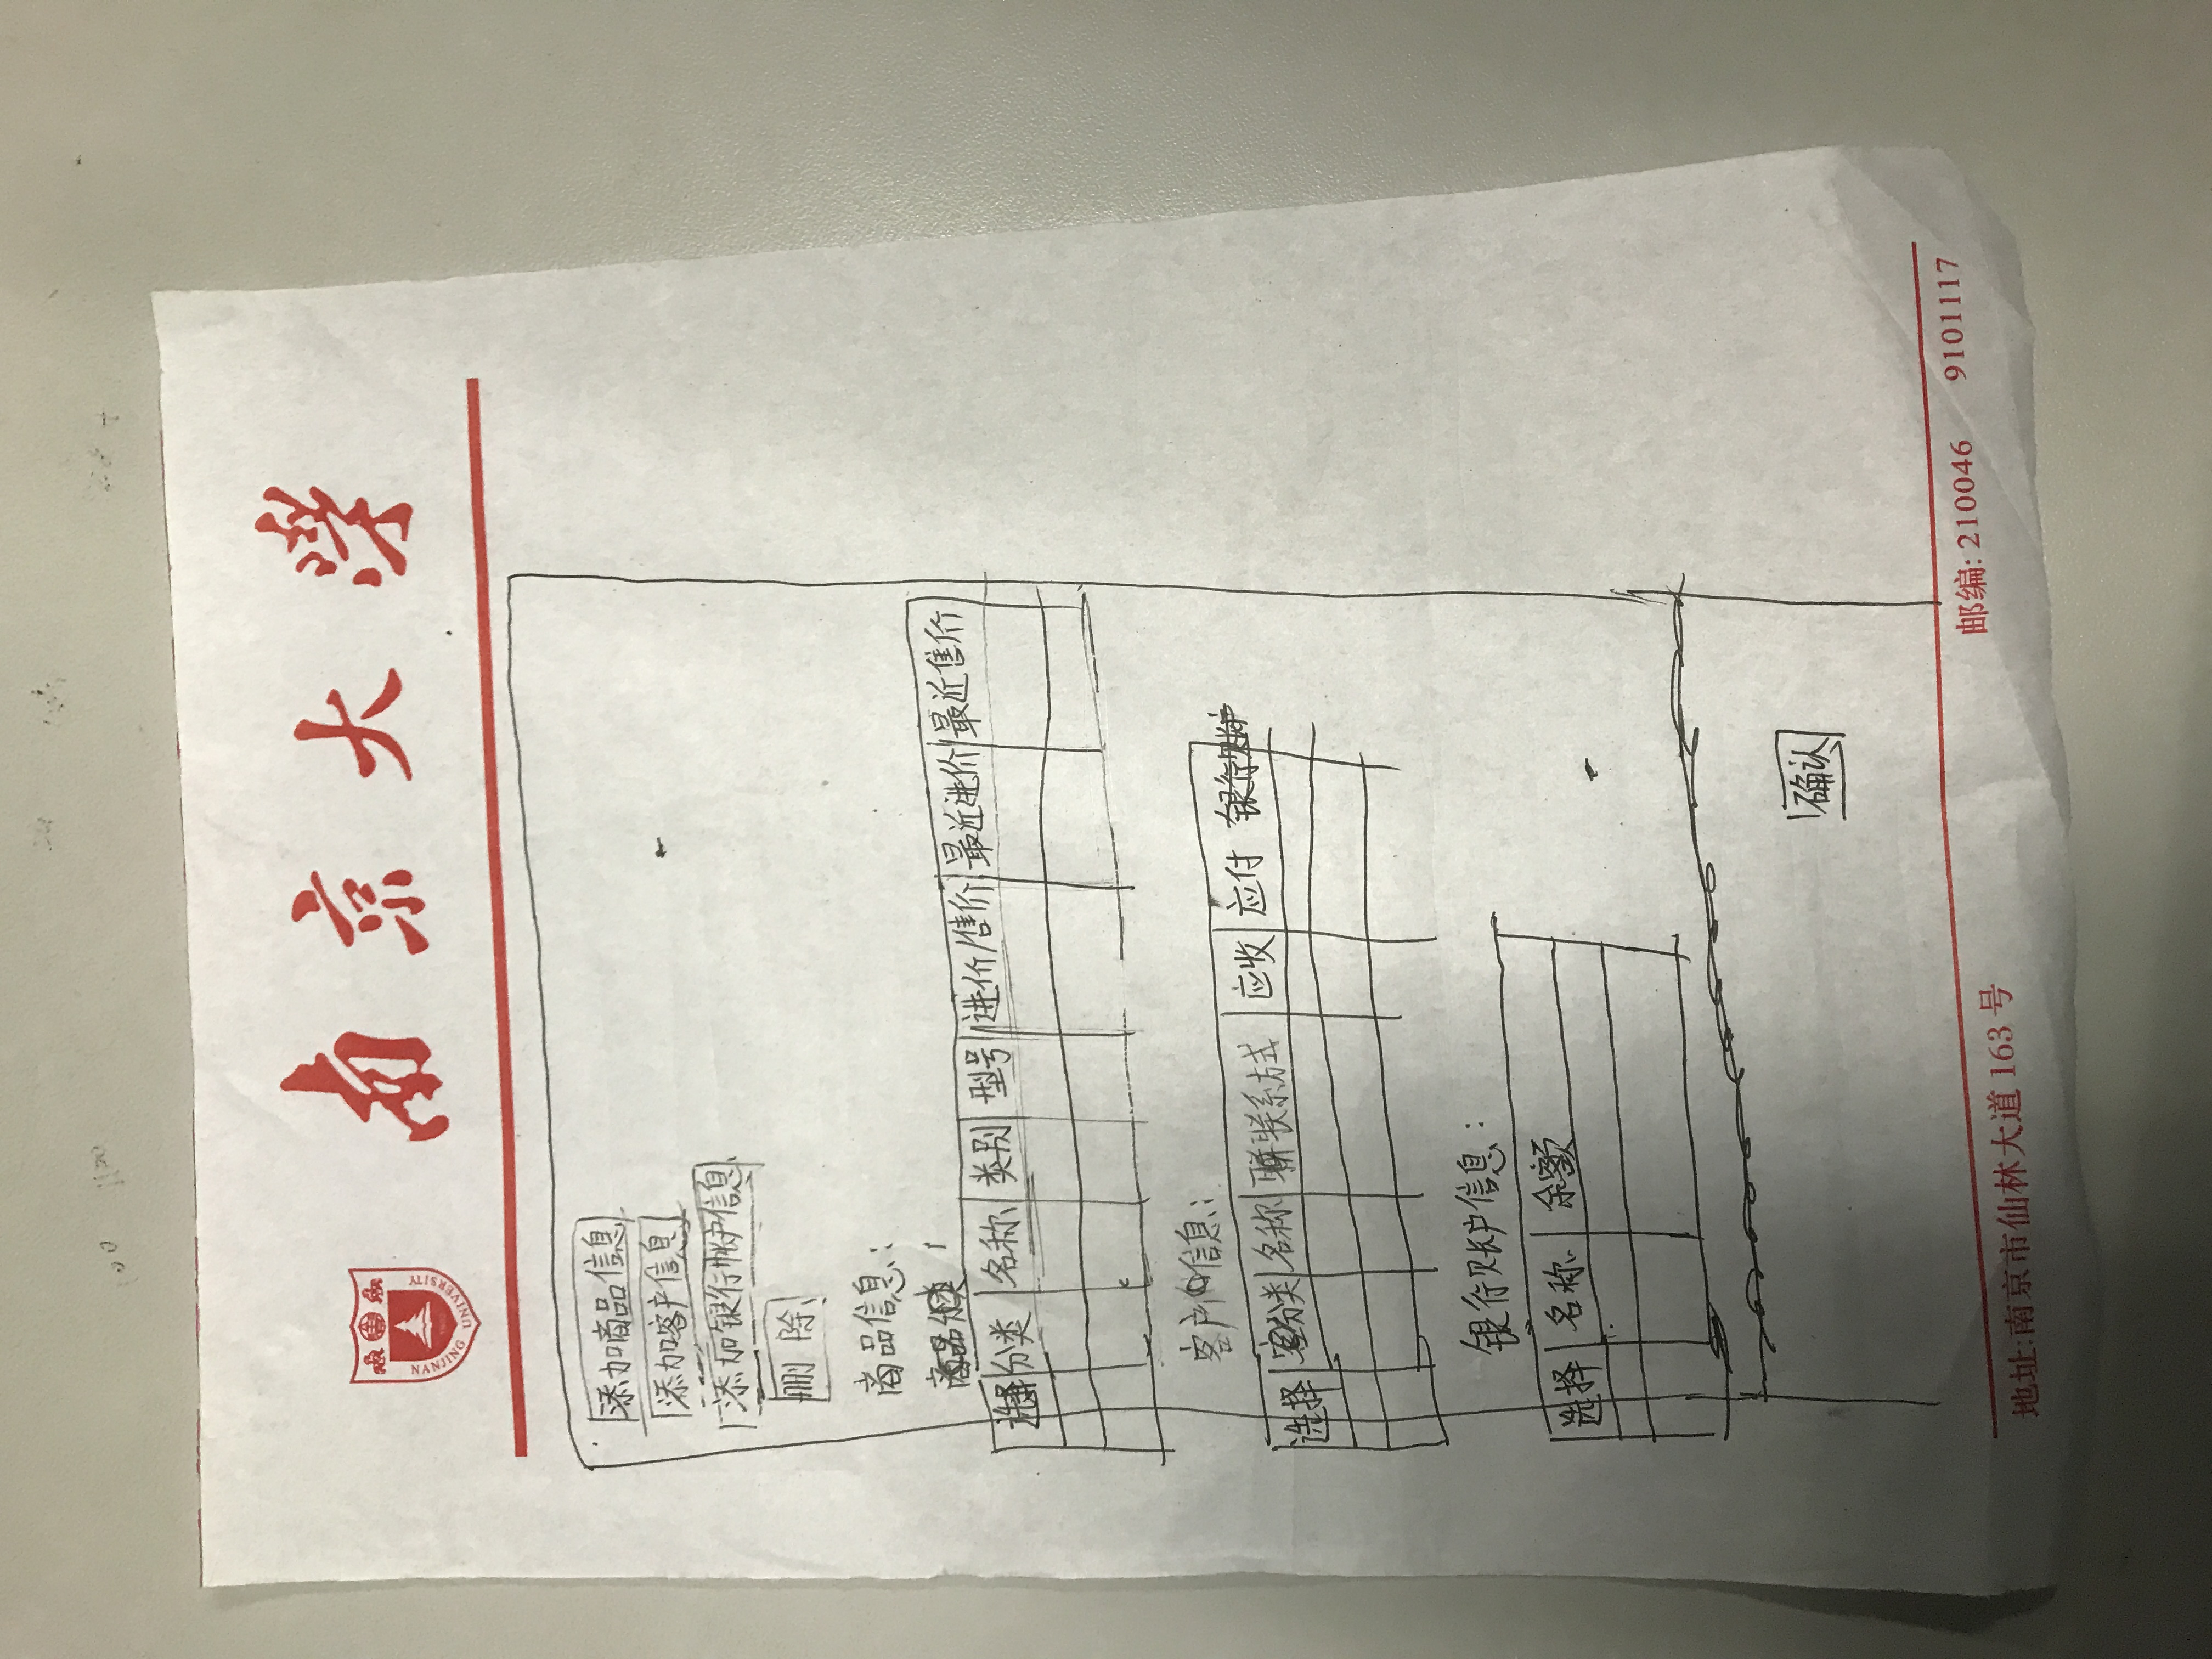 南京大学
NANJING UNIVERSITY
添加商品信息
添加客户信息
添加银行帐户信息
删除
商品信息:
选择 分类 名称 类别 型号 进价/售价 最近进价 最近售价
客户信息:
选择 分类 名称 联系方式 应收 应付 银行账户
银行账户信息:
选择 名称 余额
确认
地址:南京市仙林大道163号 邮编:210046 9101117